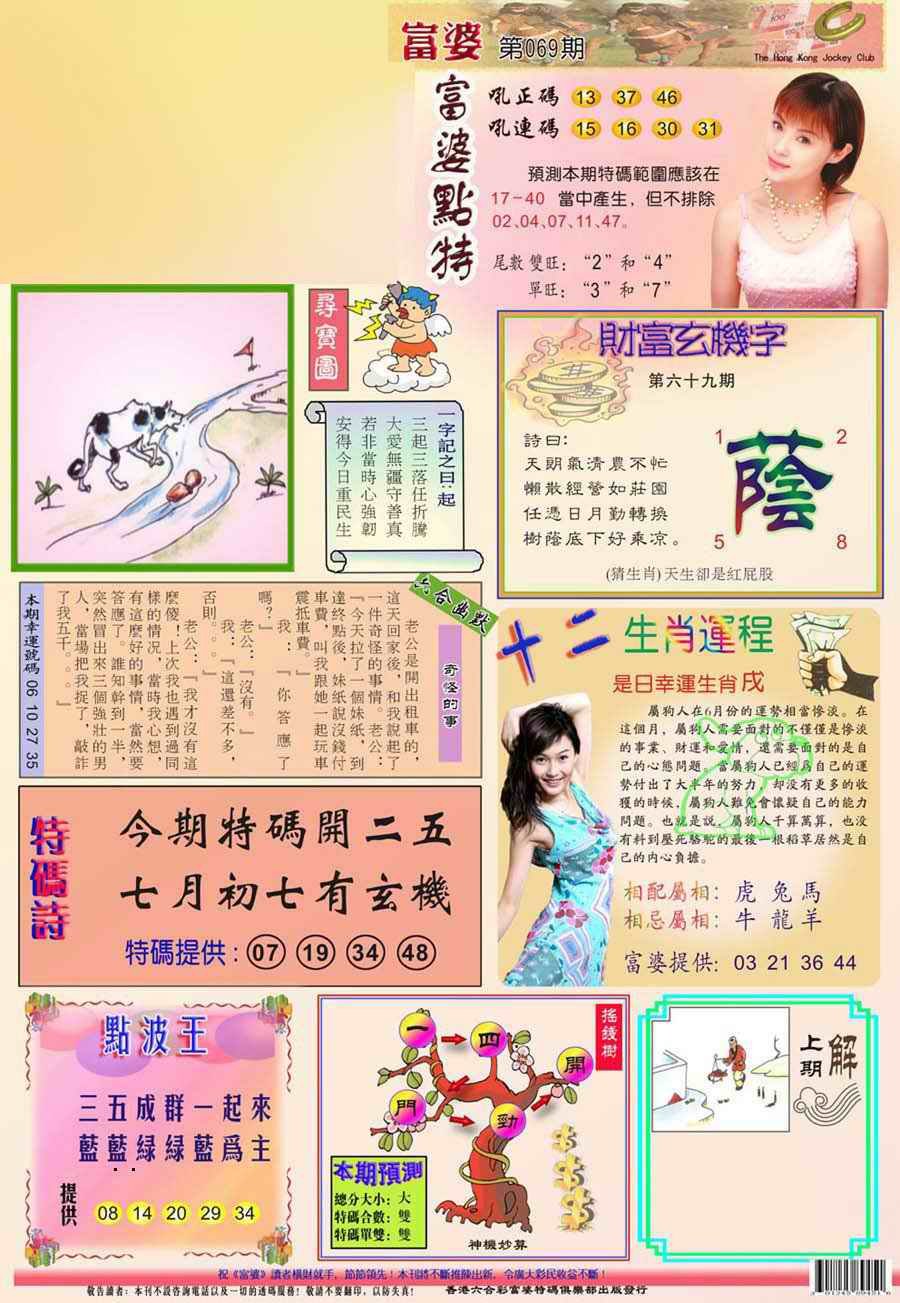 富婆 第069期
The Hong Kong Jockey Club
富婆點特
吼正碼 13 37 46
吼連碼 15 16 30 31
預測本期特碼範圍應該在
17-40 當中產生，但不排除
02、04、07、11、47。
尾數雙旺：“2”和“4”
單旺：“3”和“7”
尋寶圖
一字記之曰：起
三起三落任折騰
大愛無疆守善真
若非當時心強韌
安得今日重民生
財富玄機字
第六十九期
詩曰：
天朗氣清農不忙
懶散經營如莊園
任憑日月勤轉換
樹蔭底下好乘凉。
1 2
蔭
5 8
(猜生肖)天生卻是紅屁股
六合幽默
奇怪的事
老公是開出租車的，
這天回家後，和我說起了
一件奇怪的事情。老公：
『今天拉了一個妹紙，到
達終點後，妹紙說沒錢付
車費，叫我跟她一起玩車
震抵車費。』
我：『你答應了
嗎？』
老公：『沒有。』
我：『這還差不多，
否則。。。』
老公：『我才沒有這
麼傻！上次我也遇到過同
樣的情況，當時我心想，
有這麼好的事情，當然要
答應了。誰知幹到一半，
突然冒出來三個強壯的男
人，當場把我捉了，敲詐
了我五千。。。』
本期幸運號碼 06 10 27 35
十二生肖運程
是日幸運生肖戌
屬狗人在6月份的運勢相當慘淡。在
這個月，屬狗人需要面對的不僅僅是慘淡
的事業、財運和愛情，還需要面對的是自
己的心態問題。當屬狗人已經爲自己的運
勢付出了大半年的努力，却没有更多的收
獲的時候，屬狗人難免會懷疑自己的能力
問題。也就是説，屬狗人千算萬算，也没
有料到壓死駱駝的最後一根稻草居然是自
己的内心負擔。
相配屬相：虎 兔 馬
相忌屬相：牛 龍 羊
富婆提供：03 21 36 44
特碼詩
今期特碼開二五
七月初七有玄機
特碼提供：07 19 34 48
點波王
三五成群一起來
藍藍綠綠藍爲主
提供 08 14 20 29 34
搖錢樹
一 四 開
門 勁
本期預測
總分大小：大
特碼合數：雙
特碼單雙：雙
神機妙算
上期解
祝《富婆》讀者橫財就手，節節領先！本刊將不斷推陳出新，令廣大彩民收益不斷！
敬告讀者：本刊不設咨詢電話以及一切的透碼服務！敬請不要翻印，以防失真！ 香港六合彩富婆特碼俱樂部出版發行